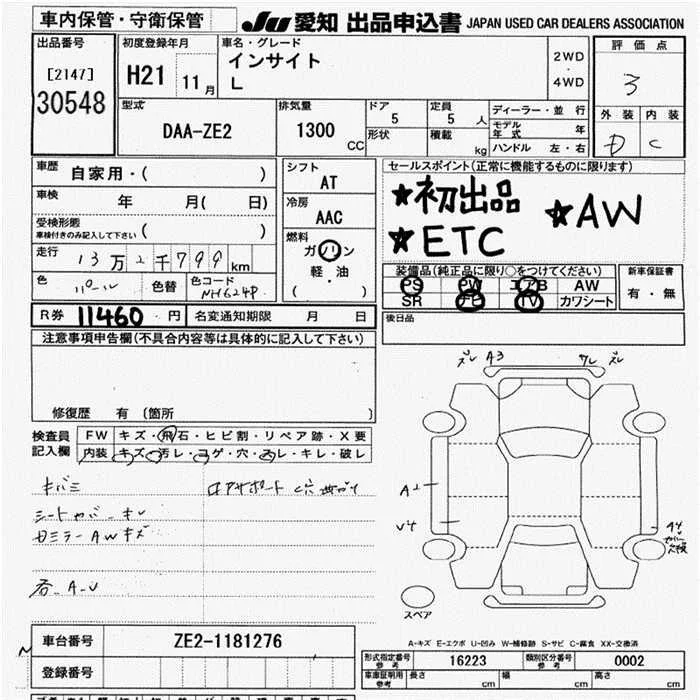 車内保管・守衛保管
JU 愛知 出品申込書 JAPAN USED CAR DEALERS ASSOCIATION
出品番号
[2147]
30548
初度登録年月
H21 11月
車名・グレード
インサイト
L
2WD
・
4WD
評価点
3
外装 内装
D C
型式
DAA-ZE2
排気量
1300 CC
ドア 5
形状
定員 5 人
積載 kg
ディーラー・並行
モデル年式 年
ハンドル 左・右
車歴 自家用・( )
車検 年 月( 日)
受検形態
車検付きのみ記入して下さい ( )
走行 13万2千799km
色 パール 色替 色コード NH624P
シフト
AT
冷房
AAC
燃料
ガソリン
軽・油
( )
セールスポイント(正常に機能するものに限ります)
★初出品 ★AW
★ETC
装備品(純正品に限り○をつけてください)
PS PW エアB AW
SR ナビ TV カワシート
新車保証書
有・無
後日品
R券 11460 円 名変通知期限 月 日
注意事項申告欄(不具合内容等は具体的に記入して下さい)
修復歴 有 (箇所 )
検査員
記入欄
FW キズ・飛石・ヒビ割・リペア跡・X要
内装 キズ・汚レ・コゲ・穴・スレ・キレ・破レ
キバミ
ズレ A3 ワレ ズレ
A1
A4
スペア
A-キズ E-エクボ U-凹み W-補修跡 S-サビ C-腐食 XX-交換済
車台番号 ZE2-1181276
登録番号
形式指定番号
参考
16223
類別区分番号
参考
0002
車庫証明用
参考
長さ cm 幅 cm 高さ cm